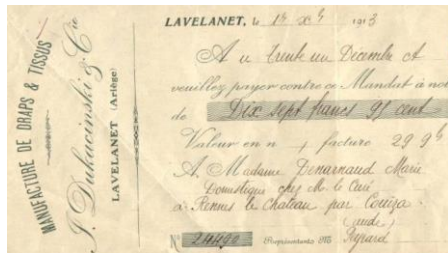 MANUFACTURE DE DRAPS & TISSUS
J. Dubacinski & Cie
LAVELANET (Ariège)
LAVELANET, le 14 Xb 1913
Au trente un Décembre
veuillez payer contre ce Mandat à not
de Dix sept francs 95 cent
Valeur en n/ facture 29 9b
A, Madame Denarnaud Marie
Domestique chez M. le Curé
à Rennes le Chateau par Couiza
(aude)
No 24490 Représentants MM